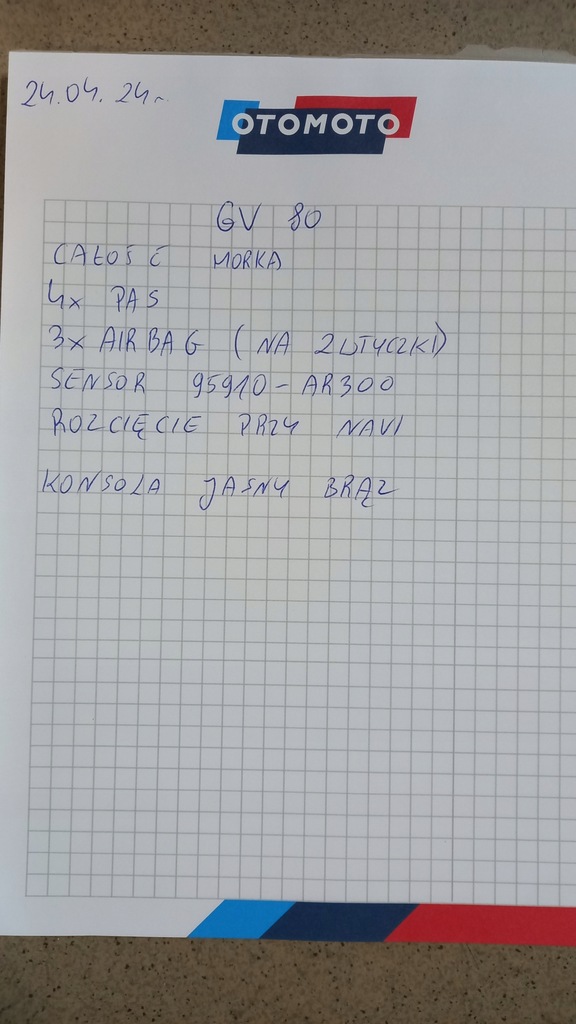 24.04.24r.
OTOMOTO
GV 80
CAŁOŚĆ MORKA
4x PAS
3x AIRBAG (NA 2 WTYCZKI)
SENSOR 95910-AR300
ROZCIĘCIE PRZY NAVI
KONSOLA JASNY BRĄZ